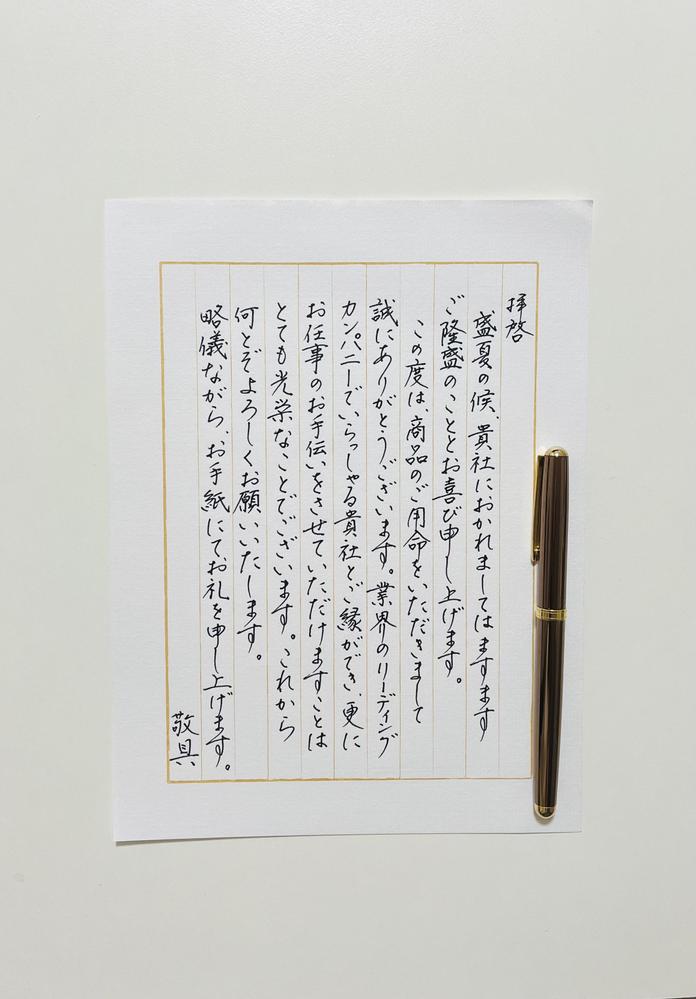 拝啓
盛夏の候、貴社におかれましてはますます
ご隆盛のこととお喜び申し上げます。
この度は、商品のご用命をいただきまして
誠にありがとうございます。業界のリーディング
カンパニーでいらっしゃる貴社とご縁ができ、更に
お仕事のお手伝いをさせていただけますことは
とても光栄なことでございます。これから
何とぞよろしくお願いいたします。
略儀ながら、お手紙にてお礼を申し上げます。
敬具